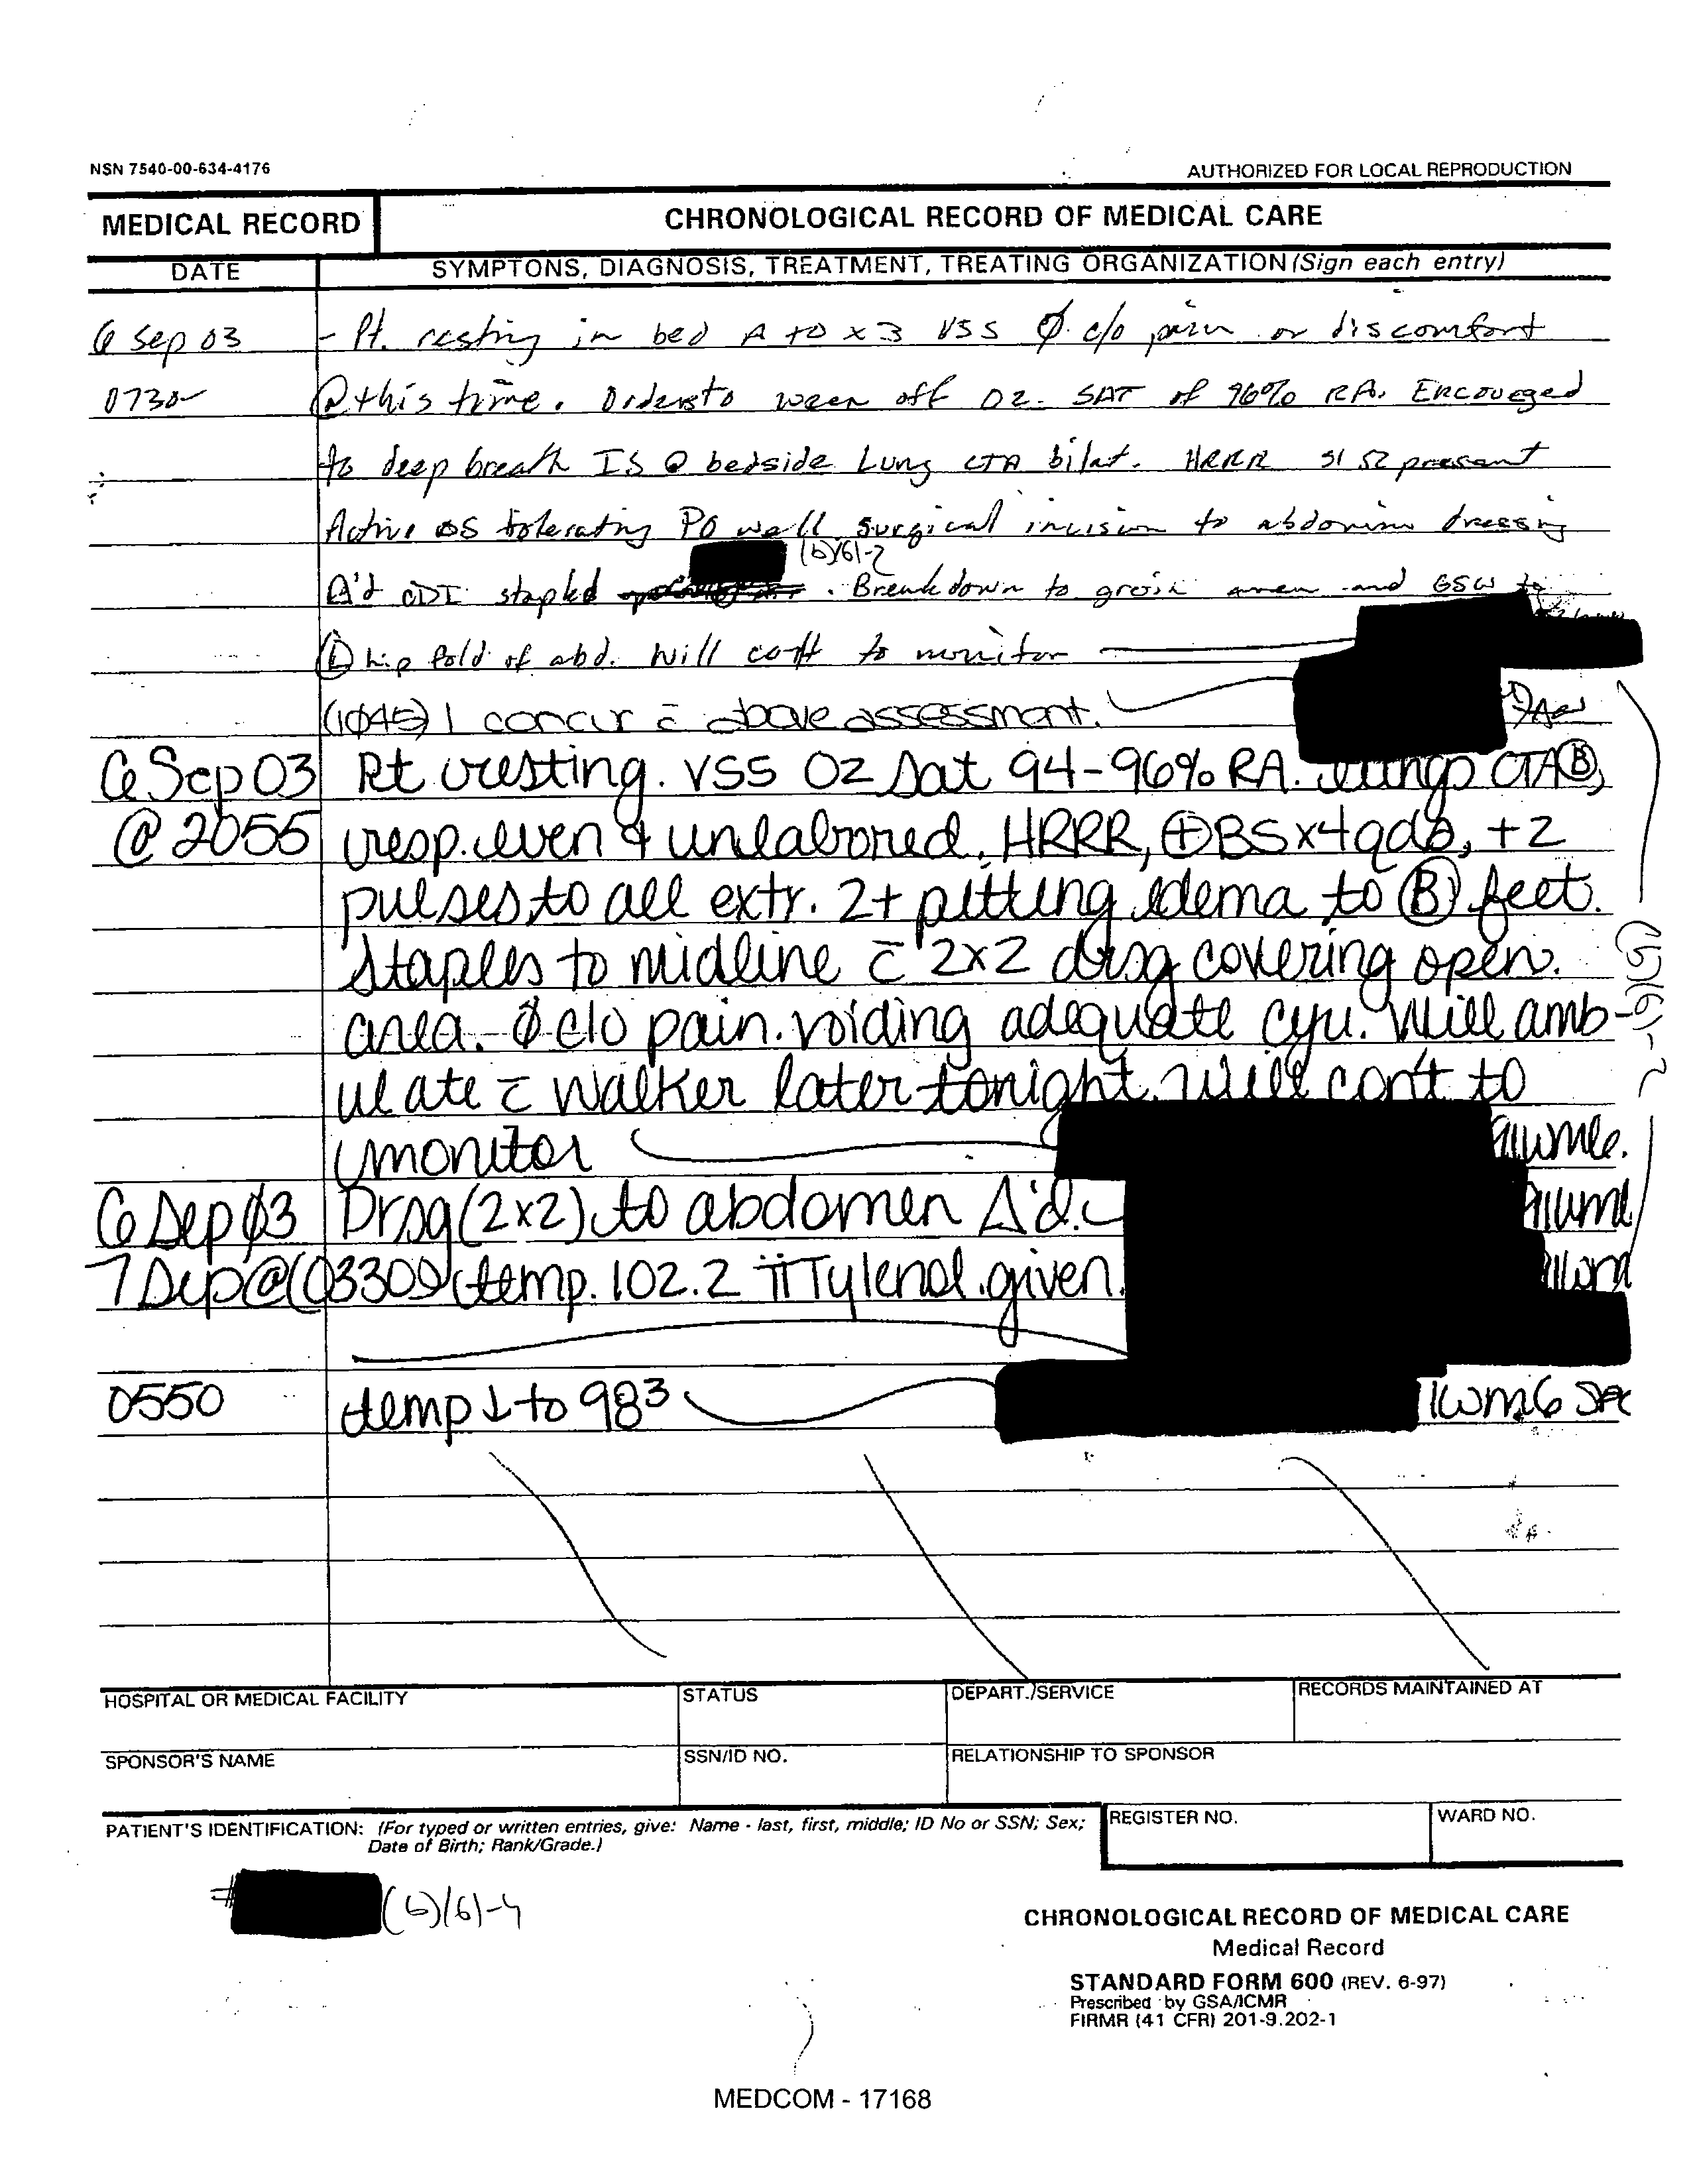 NSN 7540-00-634-4176
AUTHORIZED FOR LOCAL REPRODUCTION
MEDICAL RECORD
CHRONOLOGICAL RECORD OF MEDICAL CARE
DATE
SYMPTONS, DIAGNOSIS, TREATMENT, TREATING ORGANIZATION (Sign each entry)
6 Sep 03 - Pt. resting in bed A+O x 3 VSS Ø c/o pain or discomfort
0730 @ this time. Orders to ween off O2. SAT of 96% RA. Encouraged
to deep breath IS @ bedside Lung CTA bilat. HRRR S1 S2 present
Active BS tolerating PO well surgical incision to abdomin dressing
(b)(6)-2
Δ'd CDI stapled . Breakdown to groin area and GSW to
hip fold of abd. Will con't to monitor
(1045) I concur c̄ above assessment.
6 Sep 03 Pt resting. VSS O2 Sat 94-96% RA. Lungs CTA Ⓑ,
@ 2055 resp. even & unlabored. HRRR, ⊕BSx4qds, +2
pulses to all extr. 2+ pitting edema to Ⓑ feet.
Staples to midline c̄ 2x2 drsg covering open
area. Ø c/o pain. voiding adequate cyu. Will amb-
ulate c̄ walker later tonight. Will con't to
monitor
(b)(6)-2
6 Sep 03 Drsg (2x2) to abdomen Δ'd.
7 Sep @ (0330) temp. 102.2 ii Tylenol given.
0550 temp ↓ to 98³
HOSPITAL OR MEDICAL FACILITY
STATUS
DEPART./SERVICE
RECORDS MAINTAINED AT
SPONSOR'S NAME
SSN/ID NO.
RELATIONSHIP TO SPONSOR
PATIENT'S IDENTIFICATION: (For typed or written entries, give: Name - last, first, middle; ID No or SSN; Sex;
Date of Birth; Rank/Grade.)
REGISTER NO.
WARD NO.
# (b)(6)-4
CHRONOLOGICAL RECORD OF MEDICAL CARE
Medical Record
STANDARD FORM 600 (REV. 6-97)
Prescribed by GSA/ICMR
FIRMR (41 CFR) 201-9.202-1
MEDCOM - 17168